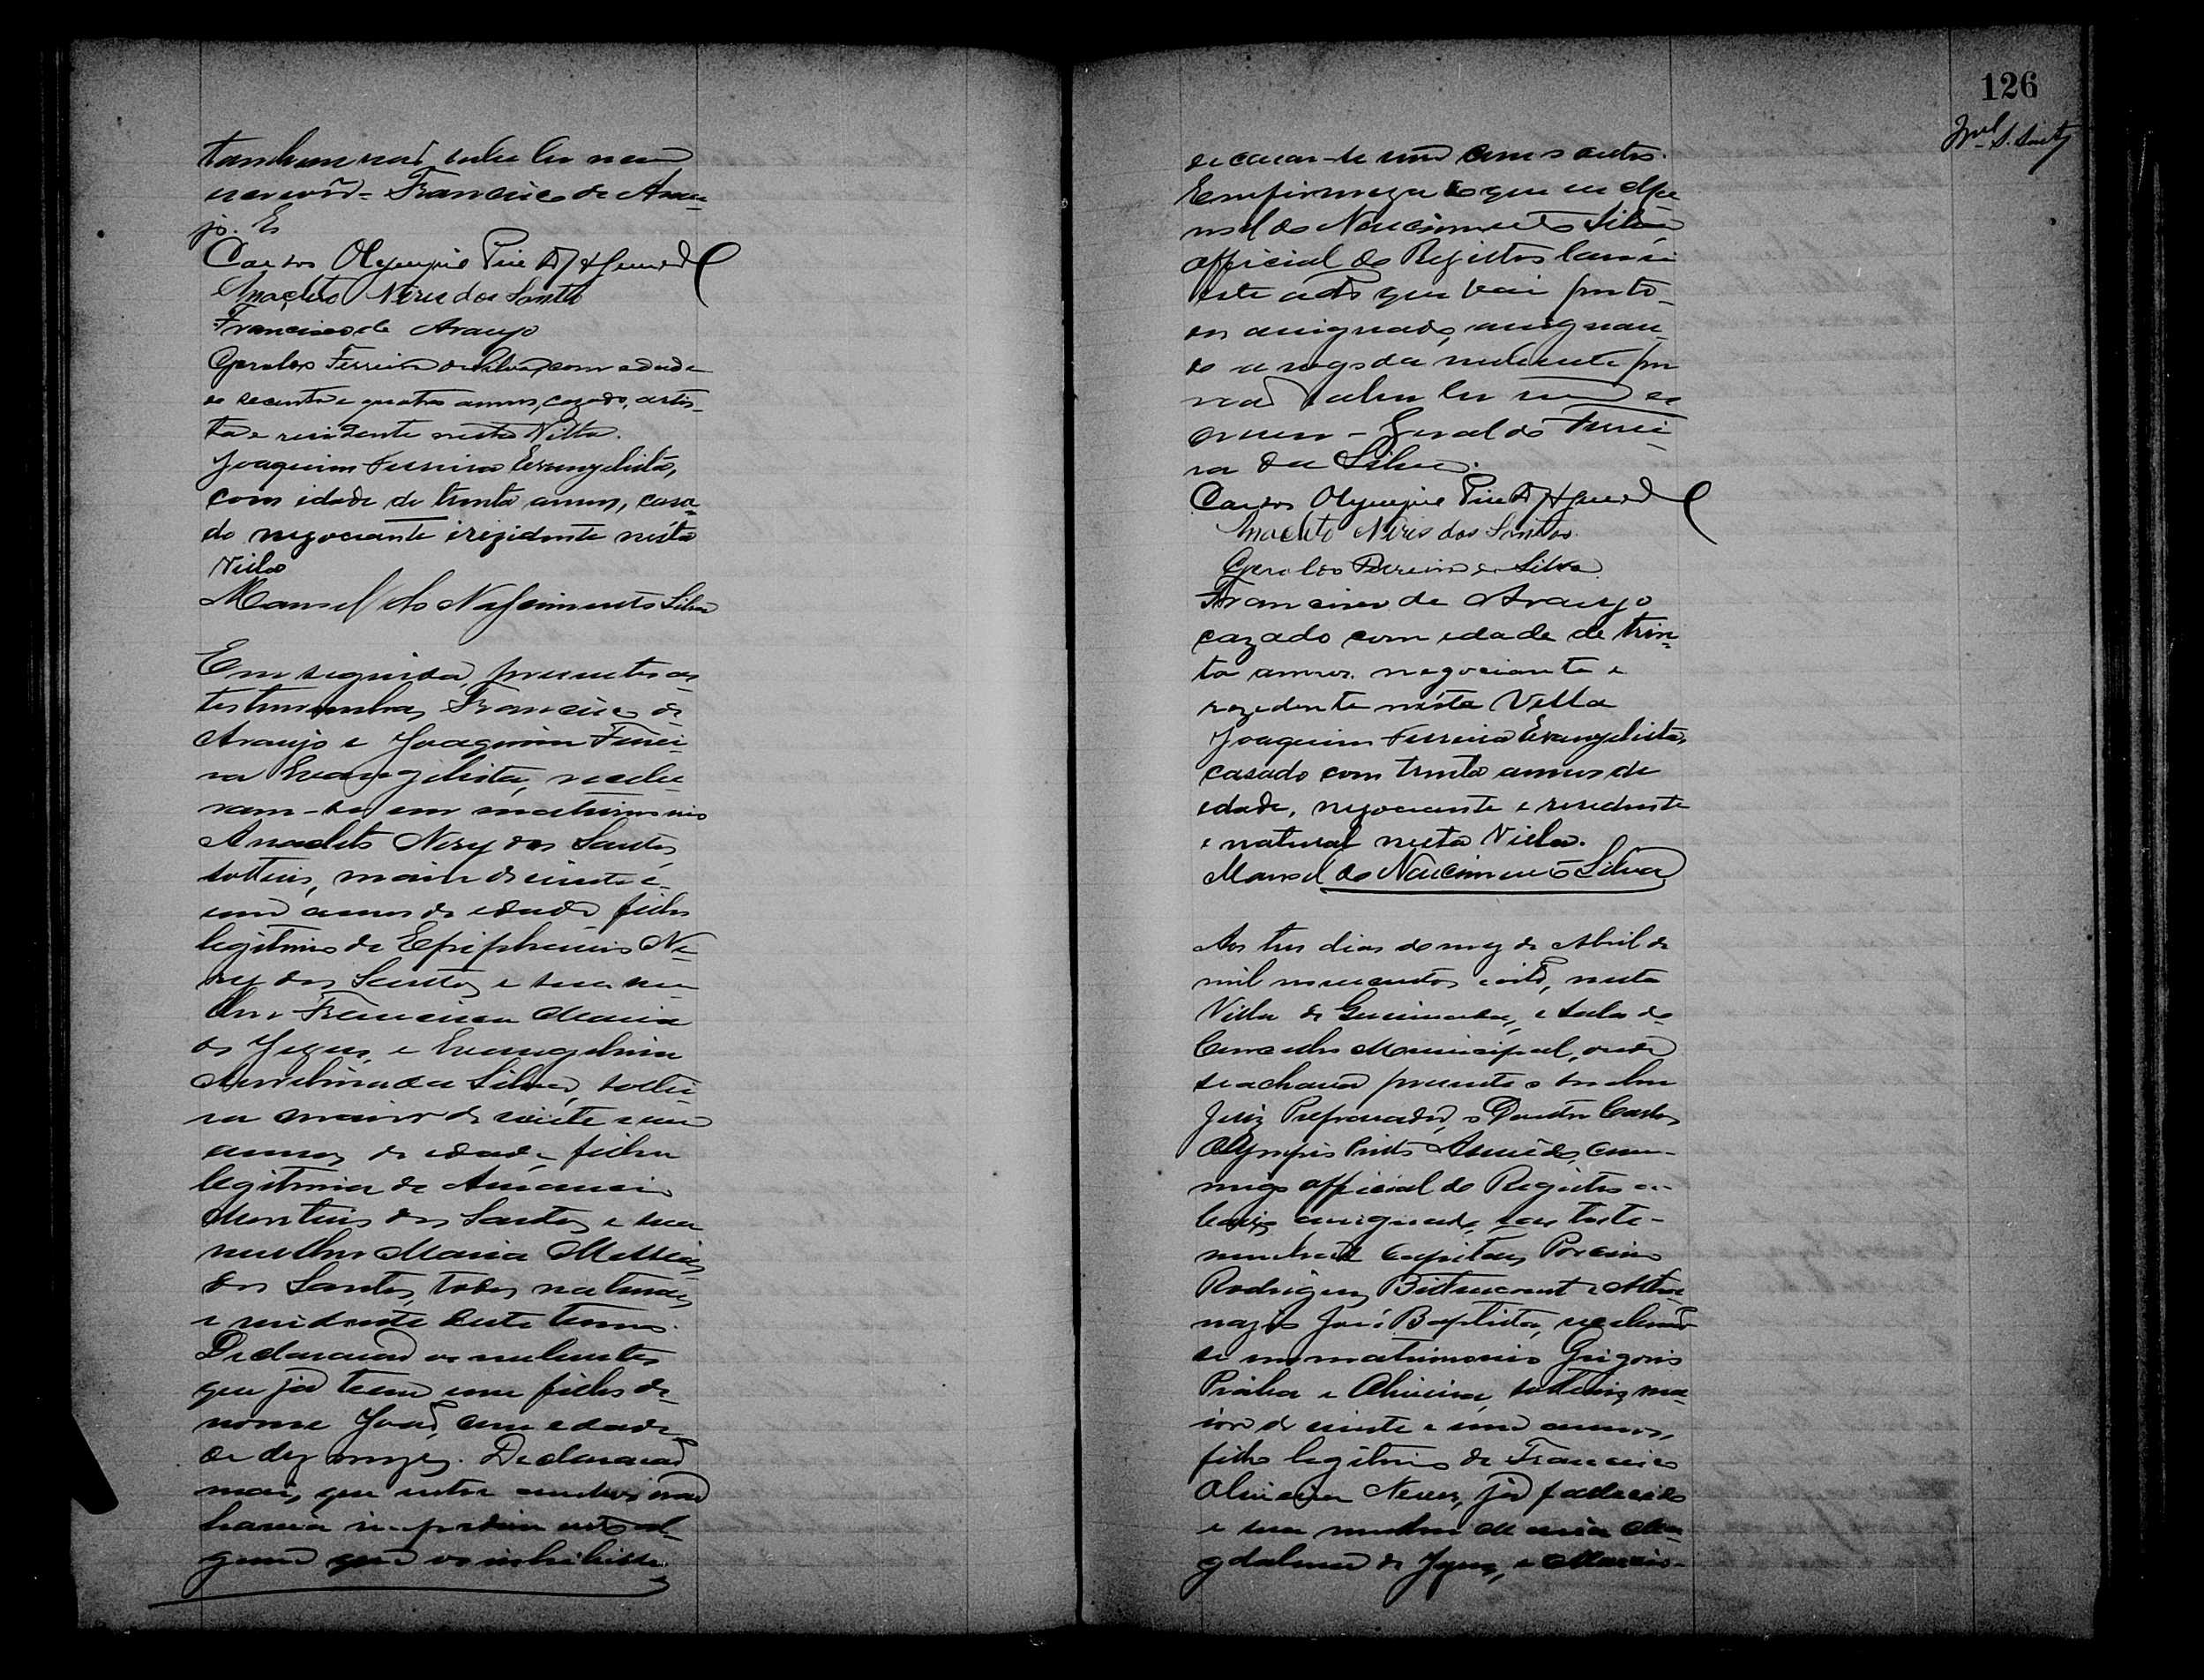 tambem não saber ler nem
escrever - Francisco de Arau-
jo. Eu
Carlos Olympio Pin
Anacleto Neris dos Santos
Francisco de Araujo
Geraldo Ferreira da Silva, com edade
de secenta e quatro annos, cazado, artis-
ta e residente nesta Villa.
Joaquim Ferreira Evangelista,
com idade de trinta annos, casa-
do negociante i rezidente nésta
Villa
Manoel do Nascimento Silva
Em seguida, presentes as
testemunhas Francisco de
Araujo e Joaquim Ferrei-
ra Evangelista, recebe-
ram-se em matrimonio
Anacleto Nery dos Santos
solteiro, maior de vinte e
um annos de edade filho
legitimo de Epiphanio Ne-
ry dos Santos e sua mu-
lher Francisca Maria
de Jezus, e Evangelina
da Silva, soltei-
ra maior de vinte e um
annos de edade filha
legitima de Amancio
Martins dos Santos e sua
mulher Maria Messias
dos Santos, todos naturaes
e residente deste termo.
Declararão os nubentes
que já teem um filho de
nome João, com edade
de dez mezes. Declararão
mais, que entre ambos não
havia impedimento al-
gum que os inhibisse
de casar-se um com o outro.
E em firmeza do que eu Ma-
noel do Nascimento Silva
official do Registro lavrei
este acto que vai por to-
dos assignado, assignan-
do a rogo da nubente por
não saber ler nem es-
crever - Geraldo Ferrei-
ra da Silva.
Carlos Olympio Pin
Anacleto Neris dos Santos
Geraldo Ferreira da Silva
Francisco de Araujo
cazado com edade de trin-
ta annos. negociante e
rezedente nésta Villa
Joaquim Ferreira Evangelista,
casado com trinta annos de
edade, negociante e residente
e natural nesta Villa.
Manoel do Nascimento Silva
Aos tres dias do mez de Abril de
mil novecentos e oito, nesta
Villa de e sala do
Conselho Municipal, onde
se achava presente o senhor
Juiz Preparador, o Doutor Carlos
Olympio Pinto de Azevedo, com-
migo official do Registro a-
baixo assignado, e as teste-
munhas Capitão Porcino
Rodrigues Bittencourt e Atha-
nazio José Baptista, receberão-
se em matrimonio Grigorio
e Oliveira, solteiro, ma-
ior de vinte e um annos,
filho legitimo de Francisco
Oliveira Neves, já fallecido
e sua mulher Maria Ma-
gdalena de Jezus, e
126